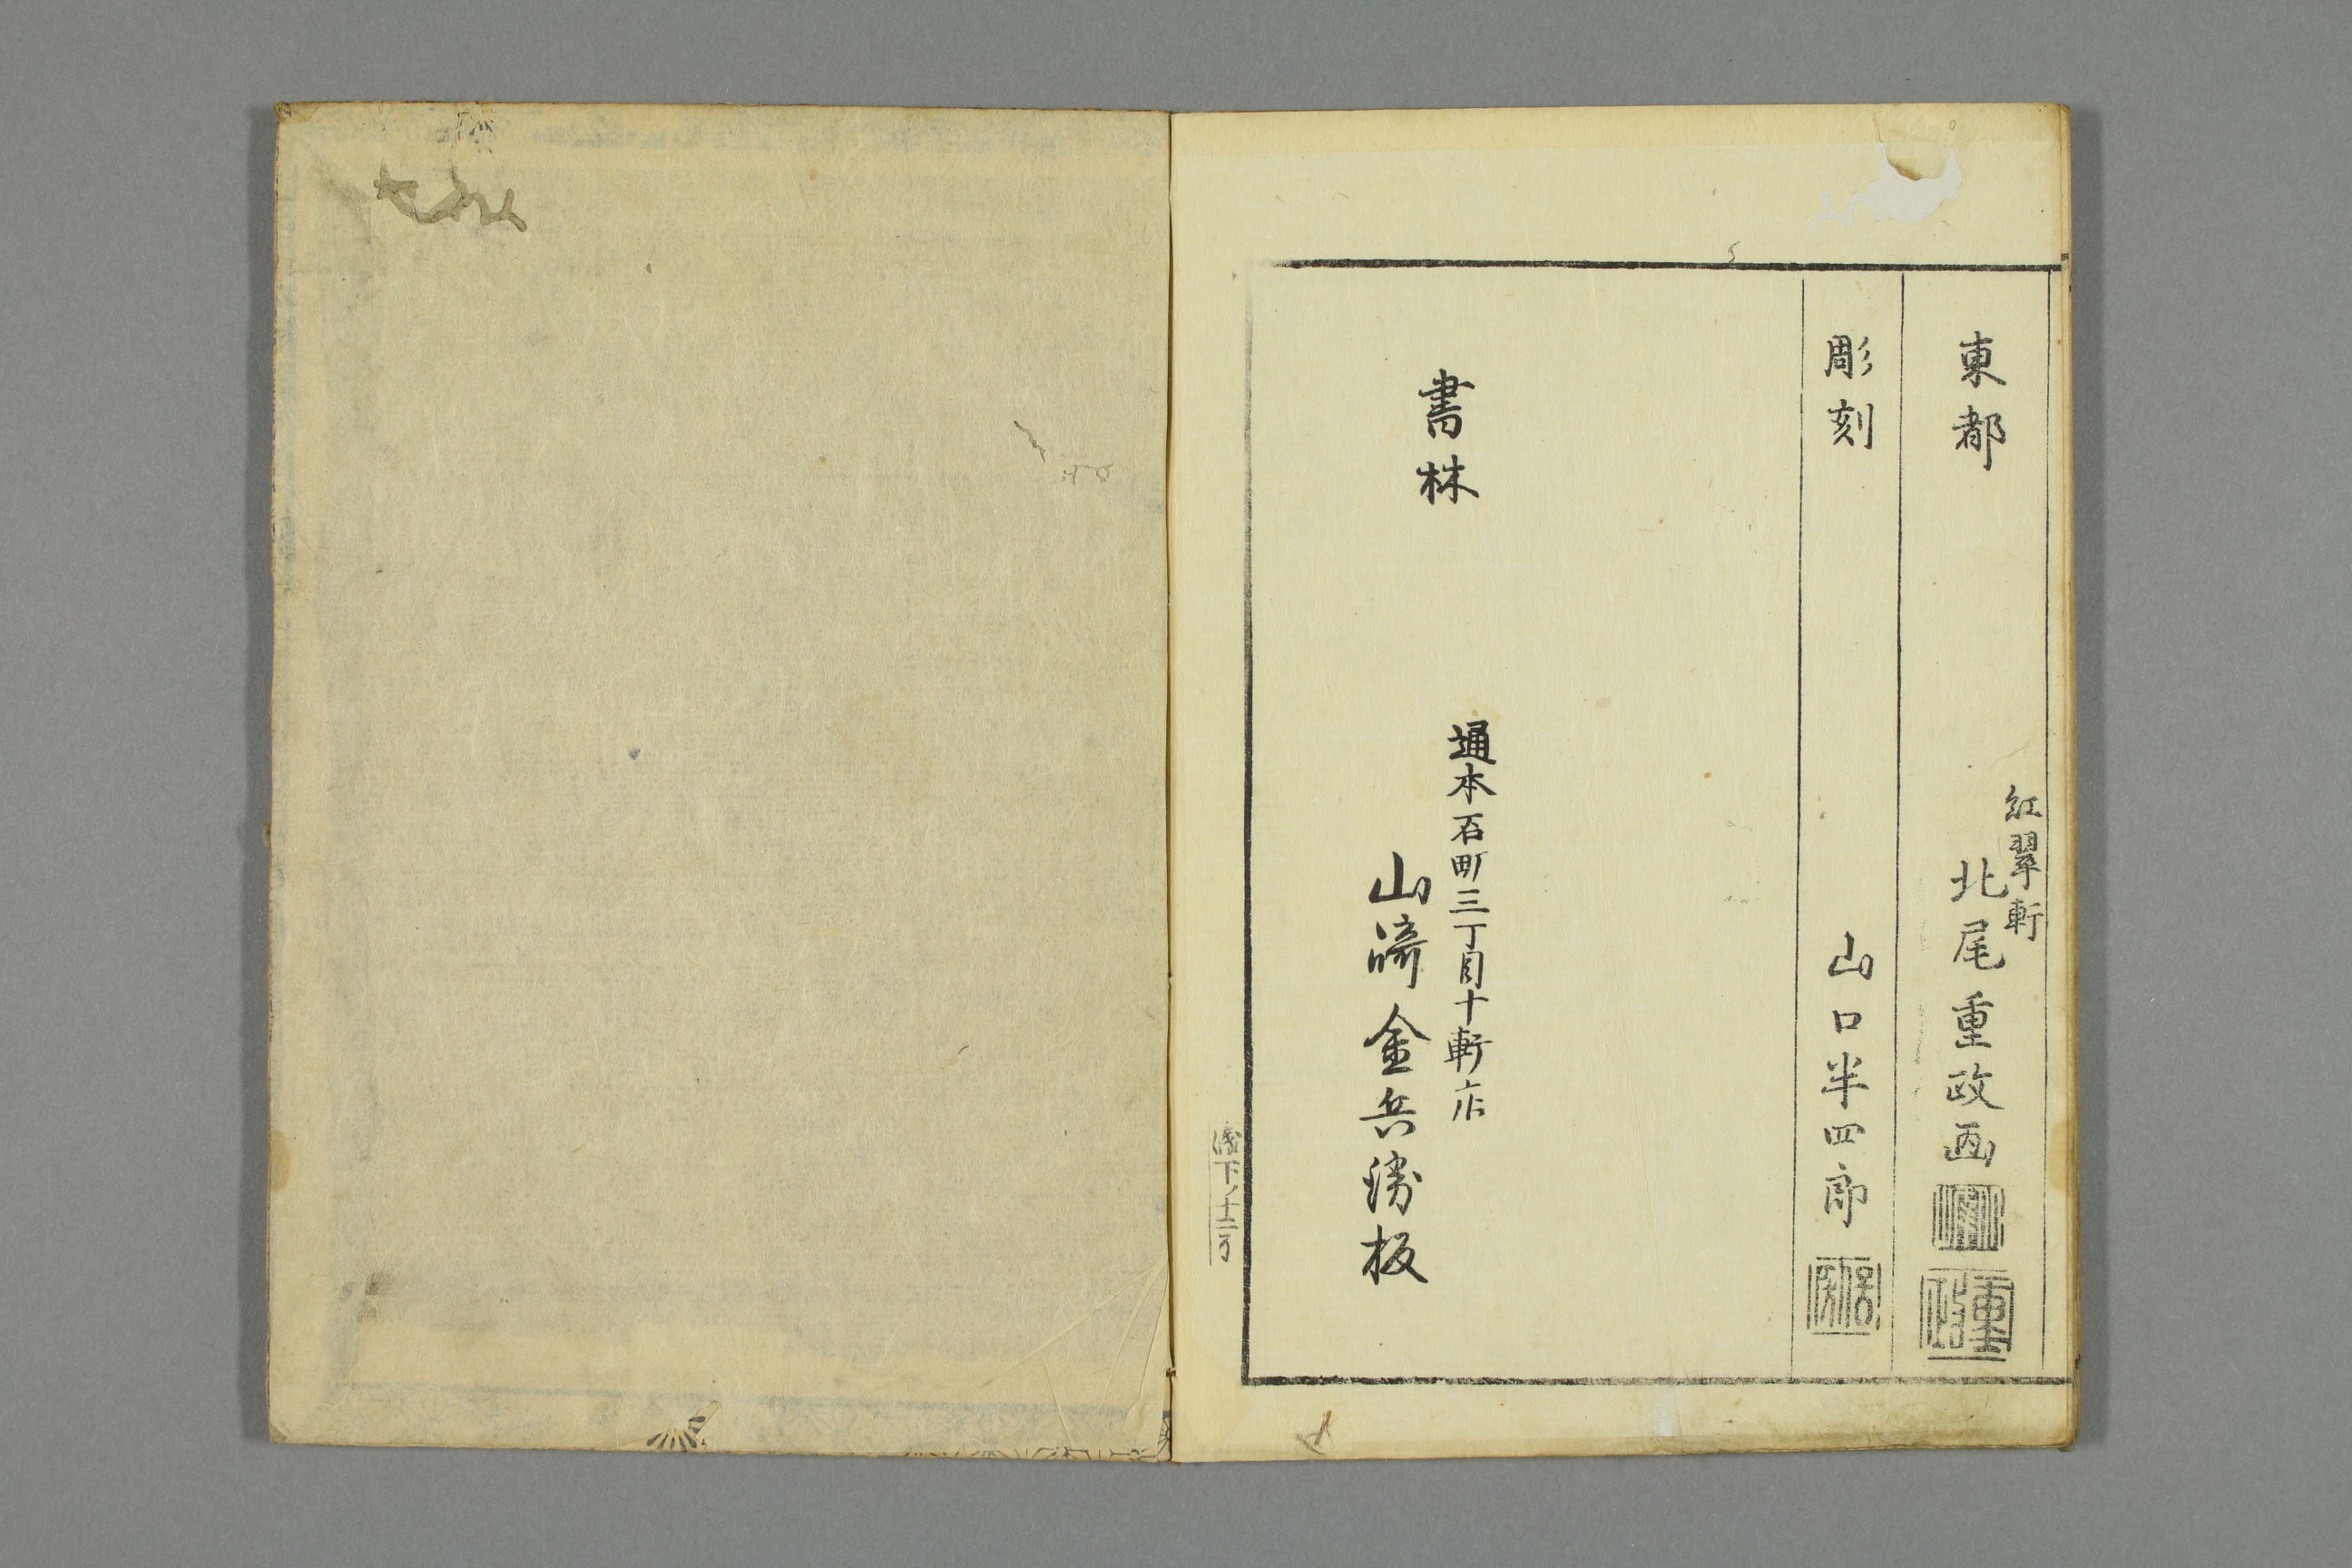 東都
紅翠軒
北尾重政画
重政
彫刻
山口半四郎
書林
通本石町三丁目十軒店
山﨑金兵衛板
浅下ノ十二了